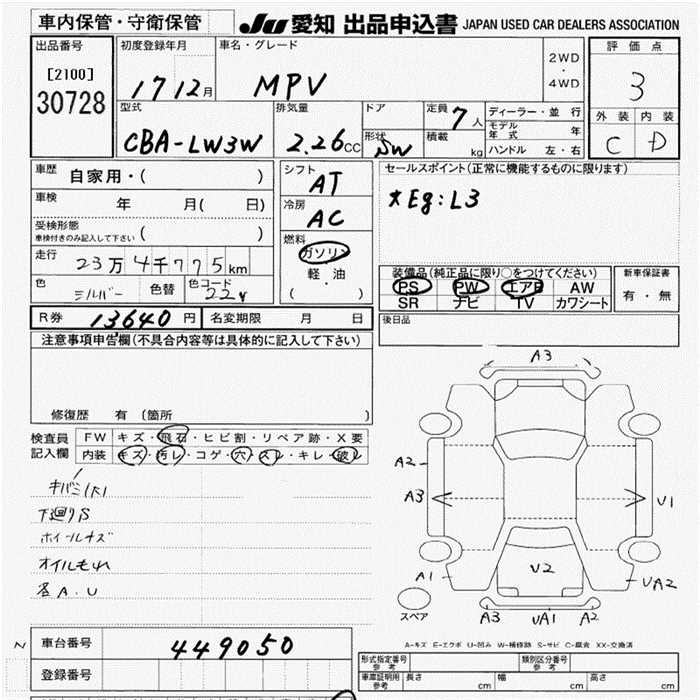 車内保管・守衛保管
JU 愛知 出品申込書 JAPAN USED CAR DEALERS ASSOCIATION
出品番号
[2100]
30728
初度登録年月
17 12月
車名・グレード
MPV
2WD
・
4WD
評価点
3
外装 内装
C D
型式
CBA-LW3W
排気量
2.26cc
ドア
形状
SW
定員 7人
積載 kg
ディーラー・並行
モデル年式 年
ハンドル 左・右
車歴 自家用・( )
車検 年 月( 日)
受検形態
車検付きのみ記入して下さい ( )
走行 23万4千775km
色 シルバー 色替 色コード 22V
シフト
AT
冷房
AC
燃料
ガソリン
軽・油
( )
セールスポイント(正常に機能するものに限ります)
*Eg:L3
装備品(純正品に限り○をつけてください)
PS PW エアB AW
SR ナビ TV カワシート
新車保証書
有・無
R券 13640円 名変期限 月 日
後日品
注意事項申告欄(不具合内容等は具体的に記入して下さい)
修復歴 有 (箇所 )
検査員
記入欄
FW キズ・飛石・ヒビ割・リペア跡・X要
内装 キズ・汚レ・コゲ・穴・スレ・キレ・破レ
下廻りS
ホイールキズ
オイルもれ
各A.U
A3
A2
A3
V1
A1
V2
UA2
スペア
A3 UA1 A2
A-キズ E-エクボ U-凹み W-補修跡 S-サビ C-腐食 XX-交換済
N
車台番号 449050
登録番号
形式指定番号
参考
類別区分番号
参考
車庫証明用
参考
長さ cm 幅 cm 高さ cm